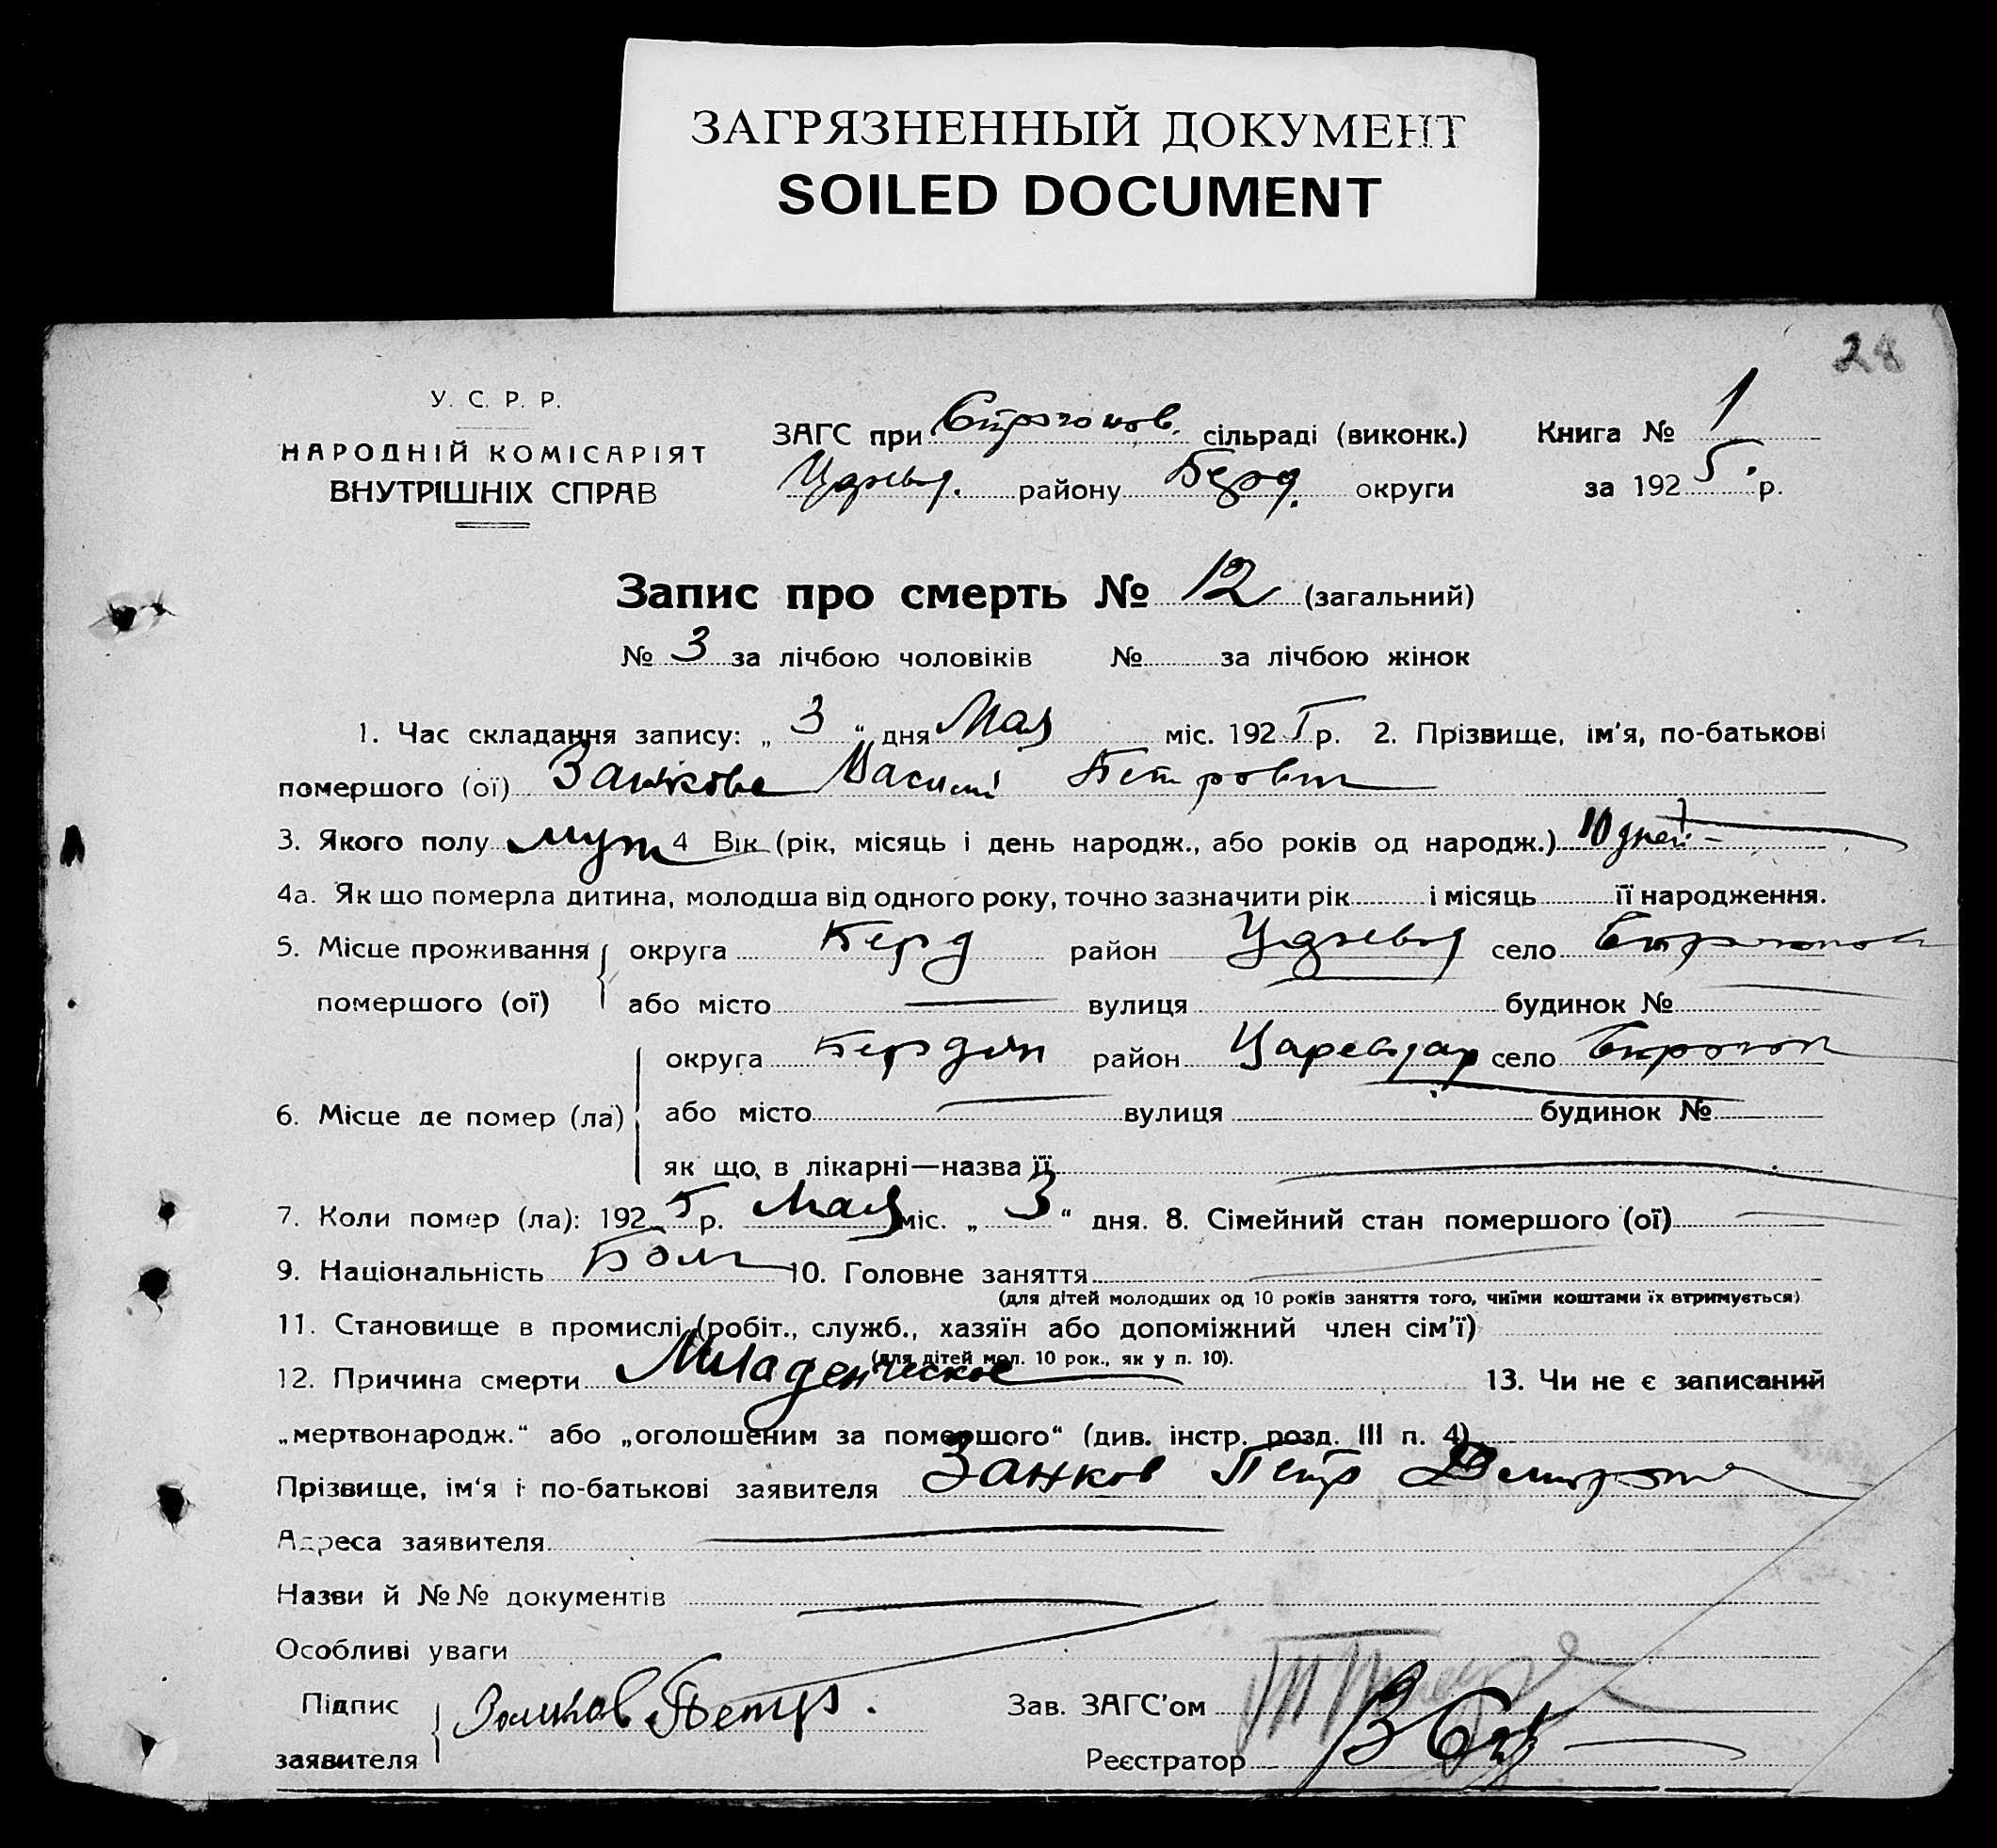 ЗАГРЯЗНЕННЫЙ ДОКУМЕНТ
SOILED DOCUMENT
28
У. С. Р. Р.
НАРОДНІЙ КОМІСАРІЯТ
ВНУТРІШНІХ СПРАВ
ЗАГС при Строганов. сільраді (виконк.) Книга № 1
району Берд. округи за 192 5 р.
Запис про смерть № 12 (загальний)
№ 3 за лічбою чоловіків № за лічбою жінок
1. Час складання запису: „ 3 “ дня Мая міс. 192 5 р. 2. Прізвище, ім'я, по-батькові
помершого (ої) Занкове Василі Петрович
3. Якого полу муж 4 Вік (рік, місяць і день народж., або років од народж.) 10 дней
4а. Як що померла дитина, молодша від одного року, точно зазначити рік і місяць її народження.
5. Місце проживання округа Берд район село
помершого (ої) або місто вулиця будинок №
округа Бердян район Царевдар село
6. Місце де помер (ла) або місто вулиця будинок №
як що, в лікарні—назва її
7. Коли помер (ла): 192 5 р. Мая міс. „ 3 “ дня. 8. Сімейний стан помершого (ої)
9. Національність Болг 10. Головне заняття
(для дітей молодших од 10 років заняття того, чиїми коштами їх втримується)
11. Становище в промислі (робіт., служб., хазяїн або допоміжний член сім'ї)
(для дітей мол. 10 рок., як у п. 10).
12. Причина смерти Младенческое 13. Чи не є записаний
„мертвонародж.“ або „оголошеним за помершого“ (див. інстр. розд. III п. 4)
Прізвище, ім'я і по-батькові заявителя Занков Петр
Адреса заявителя
Назви й №№ документів
Особливі уваги
Підпис Занков Петр. Зав. ЗАГС'ом
заявителя Реєстратор